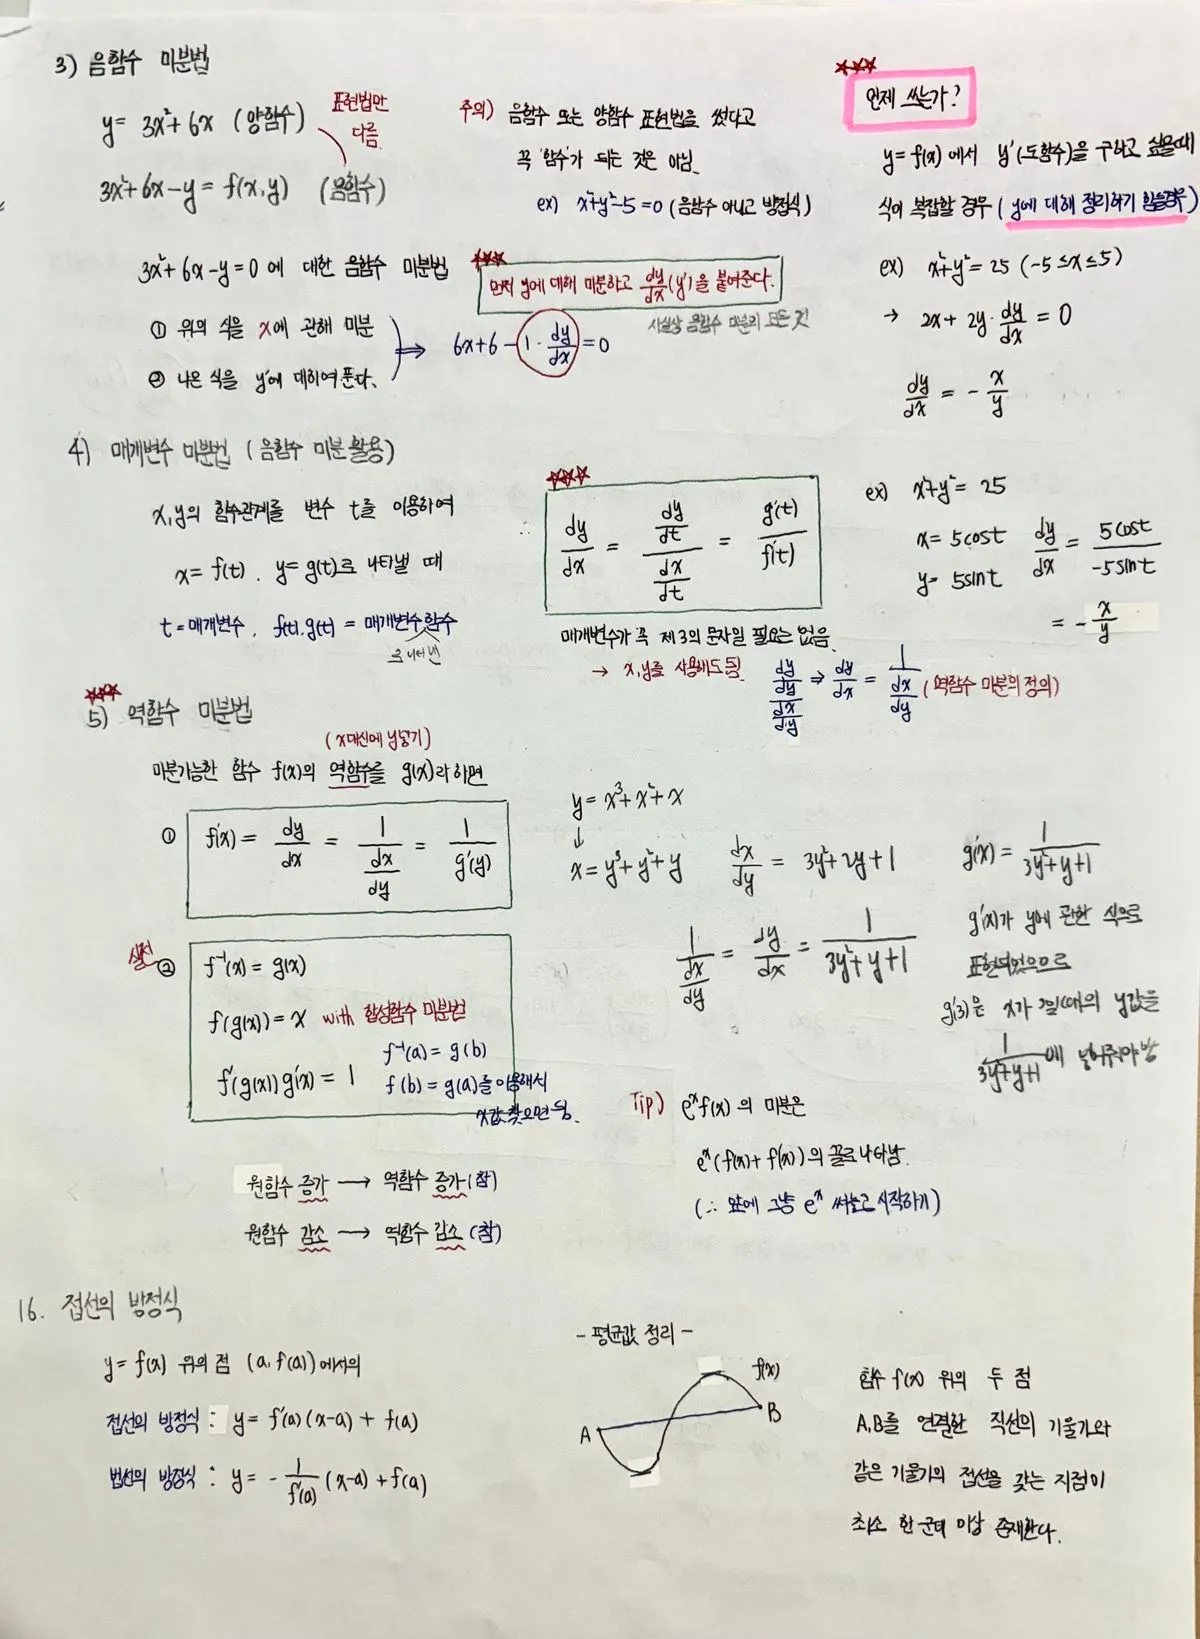 3) 음함수 미분법
y = 3x²+6x (양함수)
표현법만
다름.
3x²+6x-y = f(x,y) (음함수)
주의) 음함수 또는 양함수 표현법을 썼다고
꼭 '함수'가 되는 것은 아님.
ex) x²+y²-5=0 (음함수 아니고 방정식)
☆☆☆
언제 쓰는가?
y=f(x)에서 y'(도함수)을 구하고 싶을때
식이 복잡할 경우 (y에 대해 정리하기 힘들경우)
ex) x²+y²=25 (-5≤x≤5)
→ 2x+2y·dy/dx = 0
dy/dx = -x/y
3x²+6x-y=0에 대한 음함수 미분법
① 위의 식을 x에 관해 미분
② 나온 식을 y'에 대하여 푼다.
☆☆☆
먼저 y에 대해 미분하고 dy/dx(y')을 붙여준다.
사실상 음함수 미분의 모든 것
⇒ 6x+6-1·dy/dx=0
4) 매개변수 미분법 (음함수 미분 활용)
x,y의 함수관계를 변수 t를 이용하여
x=f(t), y=g(t)로 나타낼 때
t=매개변수, f(t),g(t) = 매개변수함수
로 나타낸
☆☆☆
∴ dy/dx = (dy/dt)/(dx/dt) = g'(t)/f'(t)
매개변수가 꼭 제 3의 문자일 필요는 없음.
→ x,y를 사용해도 됨
(dy/dy)/(dx/dy) ⇒ dy/dx = 1/(dx/dy) (역함수 미분의 정의)
ex) x²+y²=25
x=5cost
y=5sint
dy/dx = 5cost/-5sint
= -x/y
☆☆☆
5) 역함수 미분법
(x대신에 y넣기)
미분가능한 함수 f(x)의 역함수를 g(x)라 하면
① f'(x) = dy/dx = 1/(dx/dy) = 1/g'(y)
실전
② f⁻¹(x)=g(x)
f(g(x))=x with 합성함수 미분법
f'(g(x))g'(x)=1
f⁻¹(a)=g(b)
f(b)=g(a)를 이용해서
x값 찾으면 됨.
y=x³+x²+x
↓
x=y³+y²+y
dx/dy = 3y²+2y+1
1/(dx/dy) = dy/dx = 1/(3y²+y+1)
g'(x) = 1/(3y²+y+1)
g'(x)가 y에 관한 식으로
표현되었으므로
g'(3)은 x가 3일때의 y값을
1/(3y²+y+1)에 넣어줘야 함
원함수 증가 → 역함수 증가 (참)
원함수 감소 → 역함수 감소 (참)
Tip) eˣf(x)의 미분은
eˣ(f(x)+f'(x))의 꼴로 나타남.
(∴ 앞에 그냥 eˣ 써놓고 시작하기)
16. 접선의 방정식
y=f(x) 위의 점 (a,f(a))에서의
접선의 방정식 : y=f'(a)(x-a)+f(a)
법선의 방정식 : y=-1/f'(a) (x-a)+f(a)
- 평균값 정리 -
f(x)
A
B
함수 f(x) 위의 두 점
A,B를 연결한 직선의 기울기와
같은 기울기의 접선을 갖는 지점이
최소 한 군데 이상 존재한다.